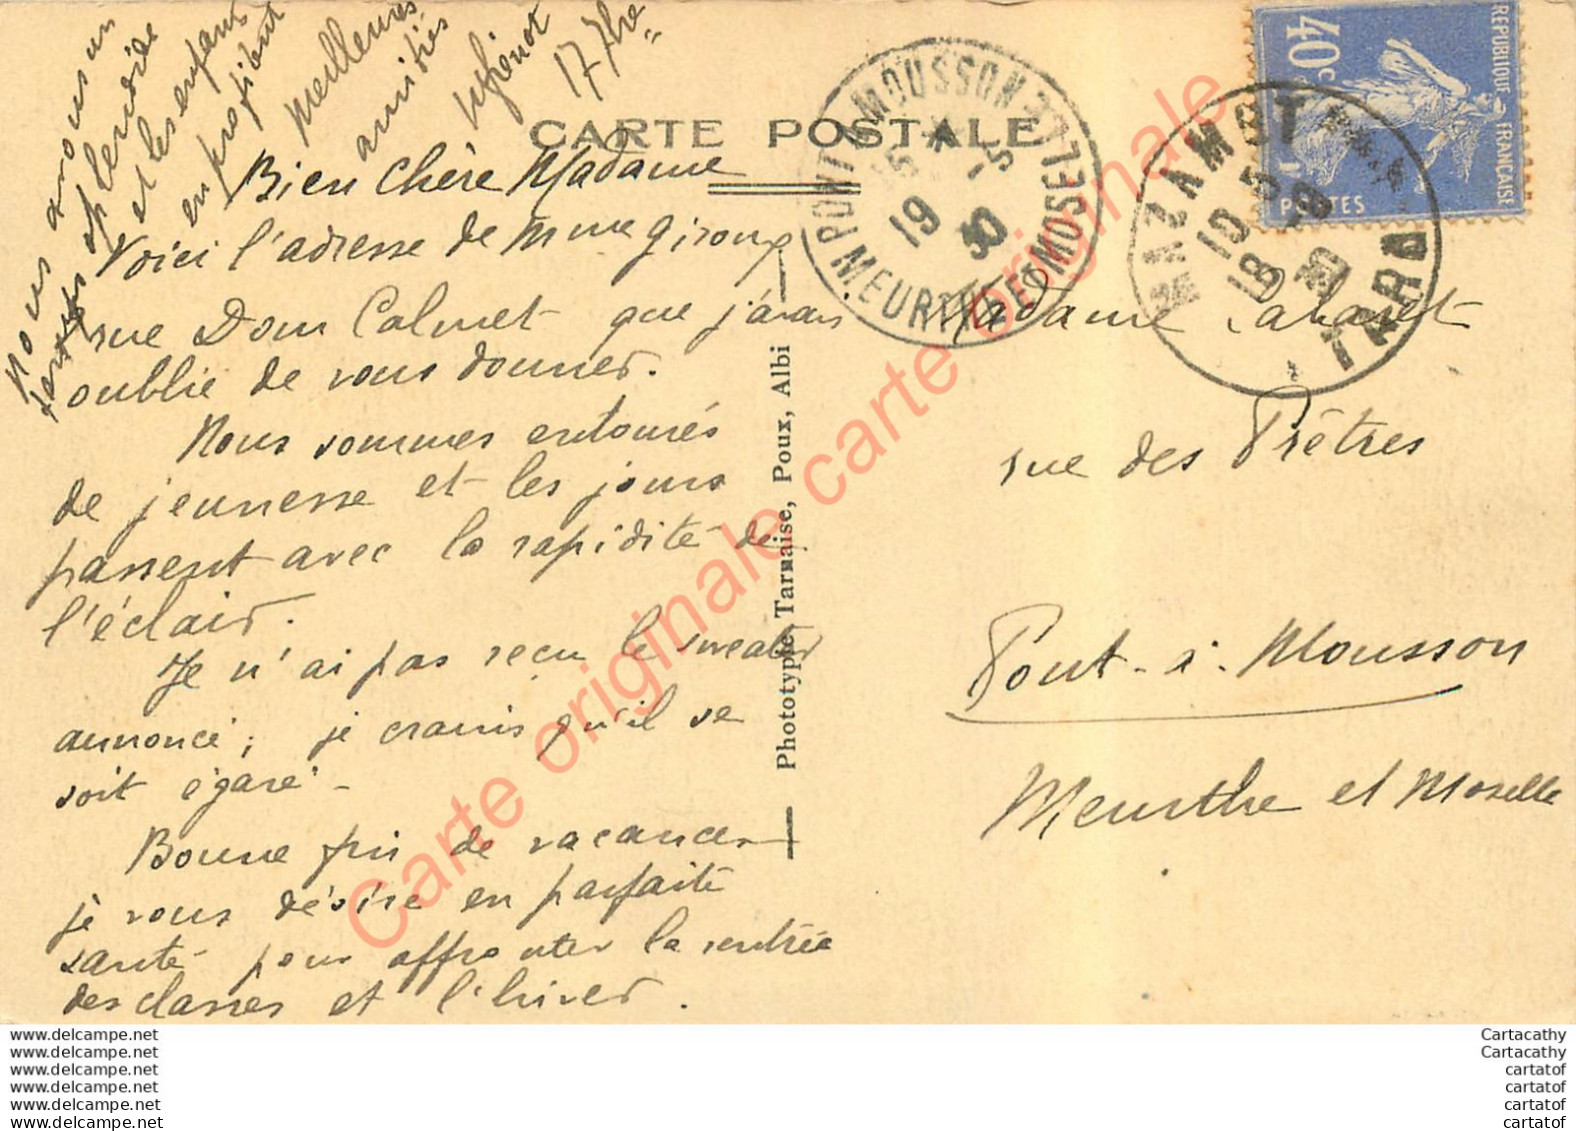 CARTE POSTALE
Bien Chère Madame
Voici l'adresse de Mme Giroux
rue Dom Calmet que j'avais
oublié de vous donner.
Nous sommes entourés
de jeunesse et les jours
passent avec la rapidité de
l'éclair.
Je n'ai pas reçu le sweater
annoncé ; je crains qu'il se
soit égaré -
Bonne fin de vacances
je vous désire en parfaite
santé pour affronter la rentrée
des classes et l'hiver.
Nous avons un
temps splendide
et les enfants
en profitent
Meilleures
amitiés
17 7bre
Phototypie Tarnaise, Poux, Albi
Madame
rue des Prêtres
Pont-à-Mousson
Meurthe et Moselle
PONT A MOUSSON
MEURTHE ET MOSELLE
19 30
MAZAMET
TARN
18 30
RÉPUBLIQUE FRANÇAISE
40c
POSTES
Carte originale carte originale
www.delcampe.net
www.delcampe.net
www.delcampe.net
www.delcampe.net
www.delcampe.net
www.delcampe.net
Cartacathy
Cartacathy
cartatof
cartatof
cartatof
cartatof